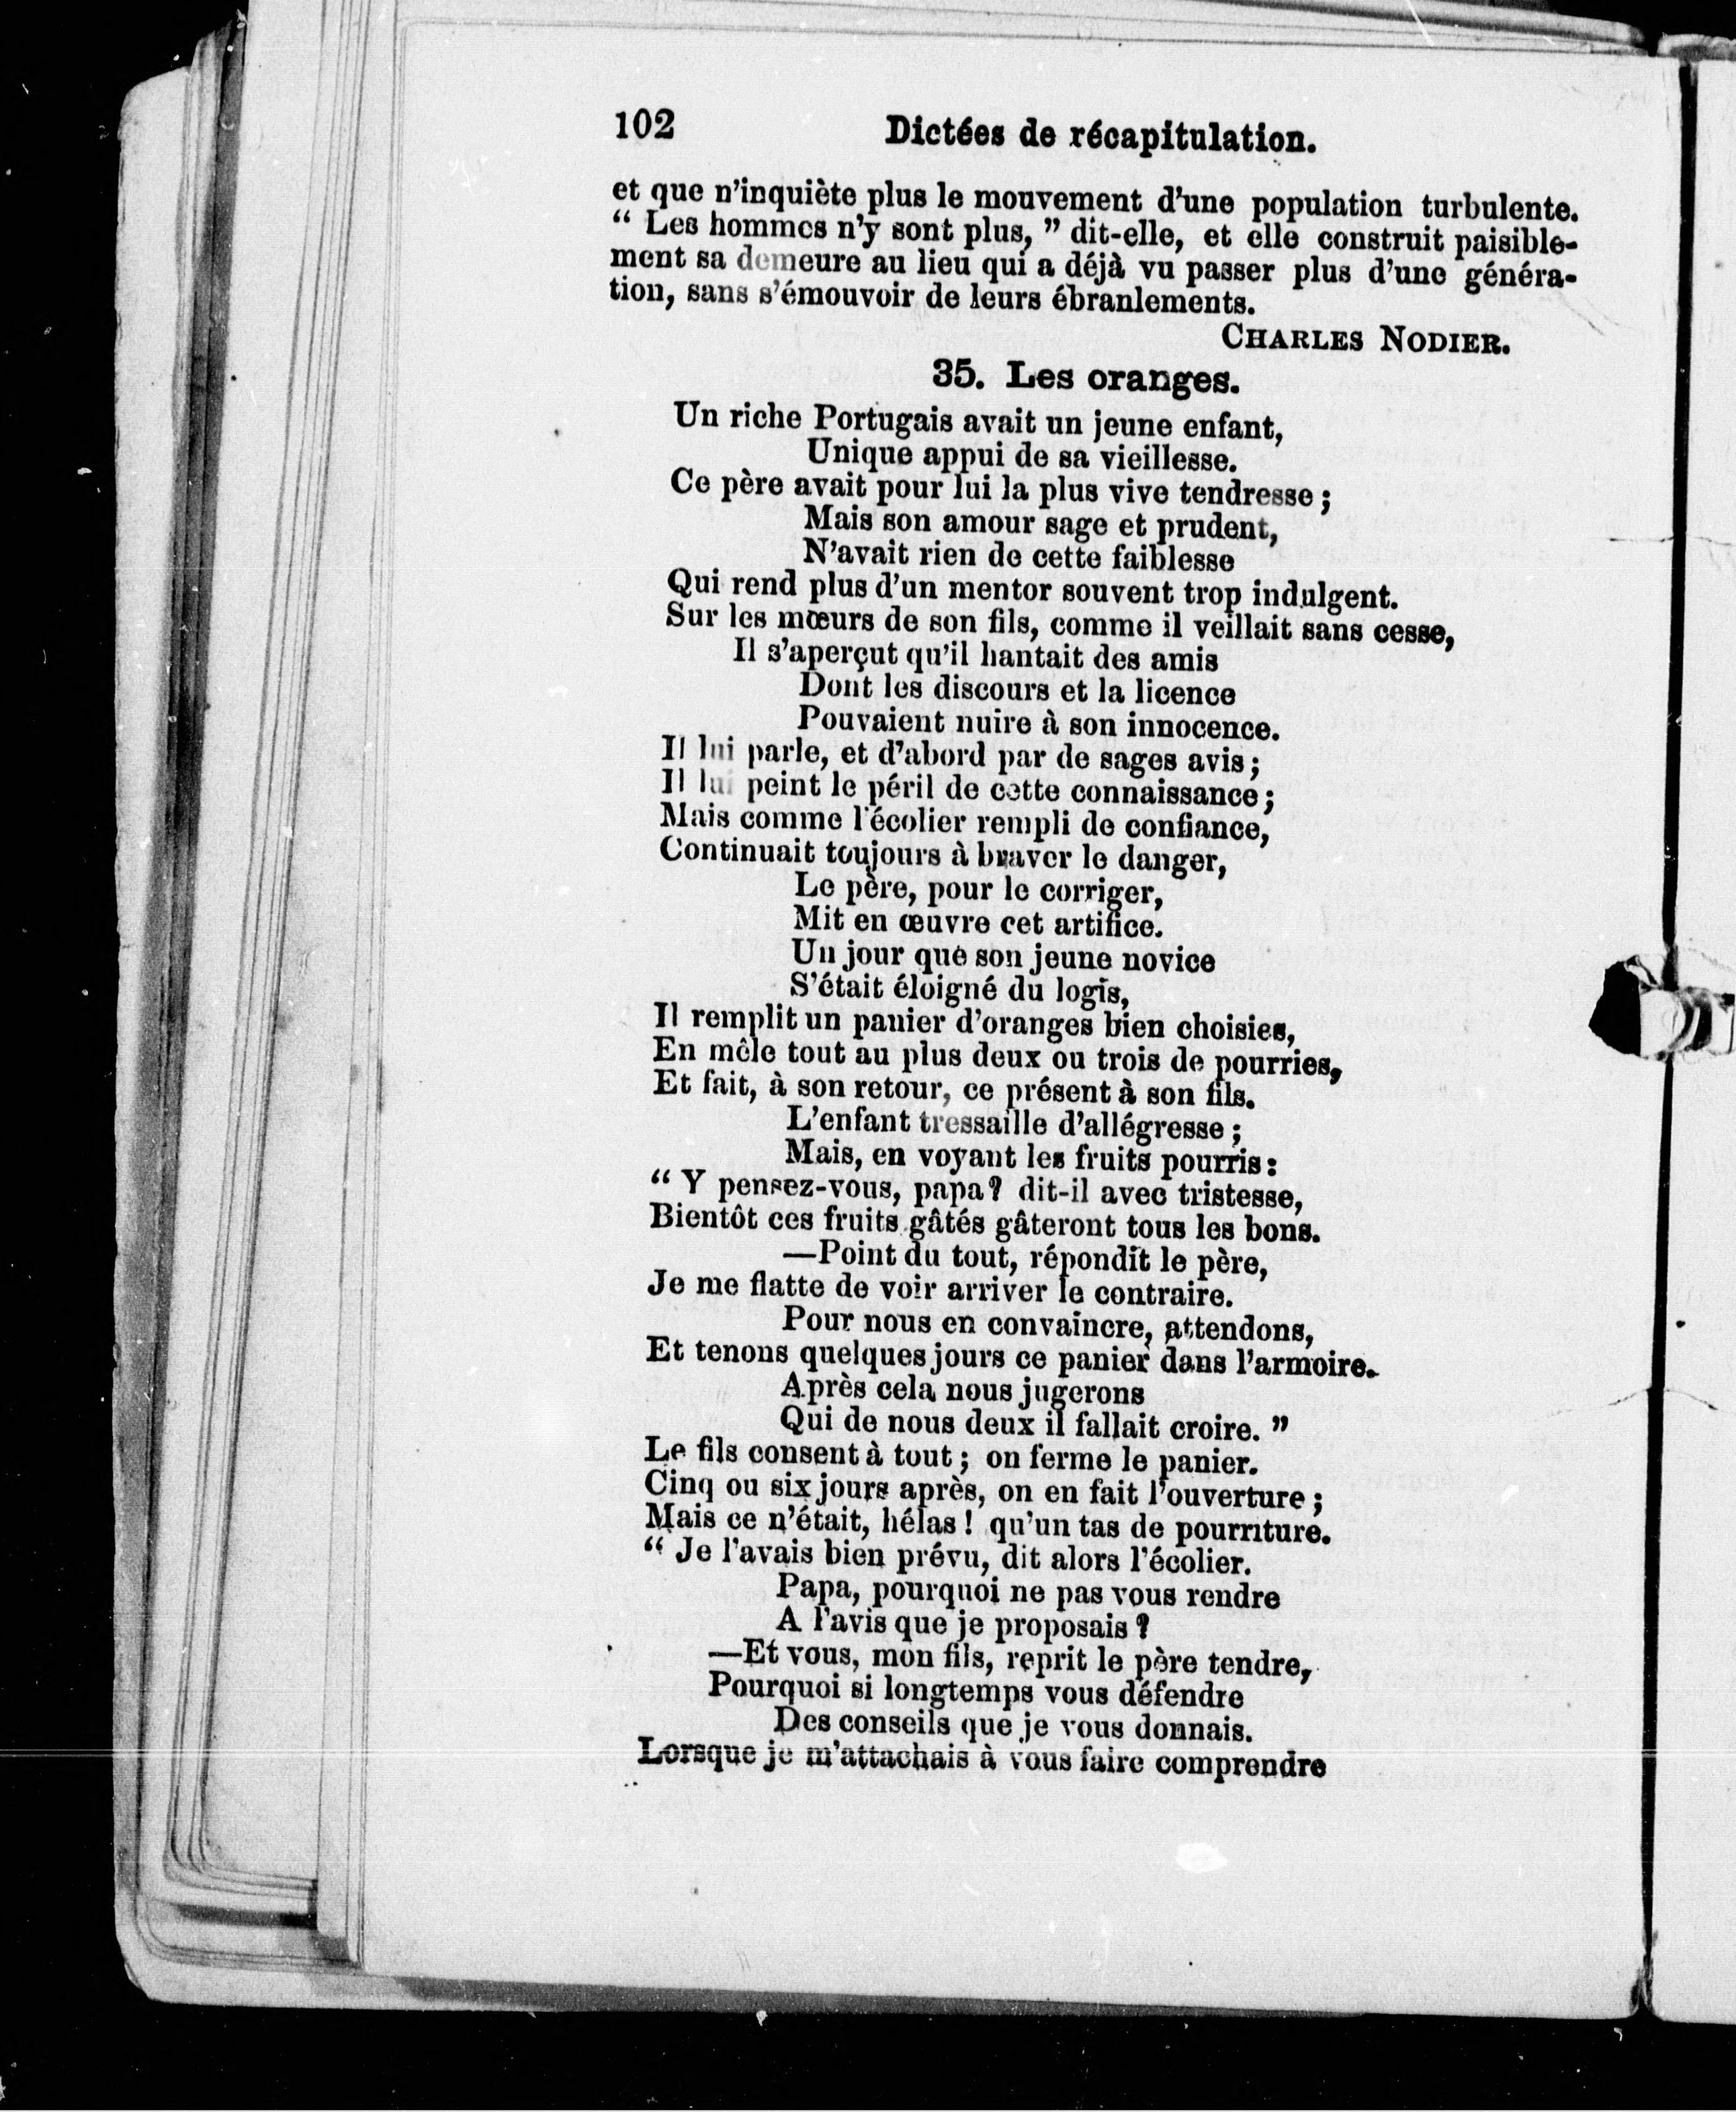 102
Dictées de récapitulation.
et que n'inquiète plus le mouvement d'une population turbulente.
“ Les hommes n'y sont plus, ” dit-elle, et elle construit paisible-
ment sa demeure au lieu qui a déjà vu passer plus d'une généra-
tion, sans s'émouvoir de leurs ébranlements.
CHARLES NODIER.
35. Les oranges.
Un riche Portugais avait un jeune enfant,
Unique appui de sa vieillesse.
Ce père avait pour lui la plus vive tendresse ;
Mais son amour sage et prudent,
N'avait rien de cette faiblesse
Qui rend plus d'un mentor souvent trop indulgent.
Sur les mœurs de son fils, comme il veillait sans cesse,
Il s'aperçut qu'il hantait des amis
Dont les discours et la licence
Pouvaient nuire à son innocence.
Il lui parle, et d'abord par de sages avis ;
Il lui peint le péril de cette connaissance ;
Mais comme l'écolier rempli de confiance,
Continuait toujours à braver le danger,
Le père, pour le corriger,
Mit en œuvre cet artifice.
Un jour que son jeune novice
S'était éloigné du logis,
Il remplit un panier d'oranges bien choisies,
En mêle tout au plus deux ou trois de pourries,
Et fait, à son retour, ce présent à son fils.
L'enfant tressaille d'allégresse ;
Mais, en voyant les fruits pourris :
“ Y pensez-vous, papa ? dit-il avec tristesse,
Bientôt ces fruits gâtés gâteront tous les bons.
—Point du tout, répondit le père,
Je me flatte de voir arriver le contraire.
Pour nous en convaincre, attendons,
Et tenons quelques jours ce panier dans l'armoire.
Après cela nous jugerons
Qui de nous deux il fallait croire. ”
Le fils consent à tout ; on ferme le panier.
Cinq ou six jours après, on en fait l'ouverture ;
Mais ce n'était, hélas ! qu'un tas de pourriture.
“ Je l'avais bien prévu, dit alors l'écolier.
Papa, pourquoi ne pas vous rendre
A l'avis que je proposais ?
—Et vous, mon fils, reprit le père tendre,
Pourquoi si longtemps vous défendre
Des conseils que je vous donnais.
Lorsque je m'attachais à vous faire comprendre